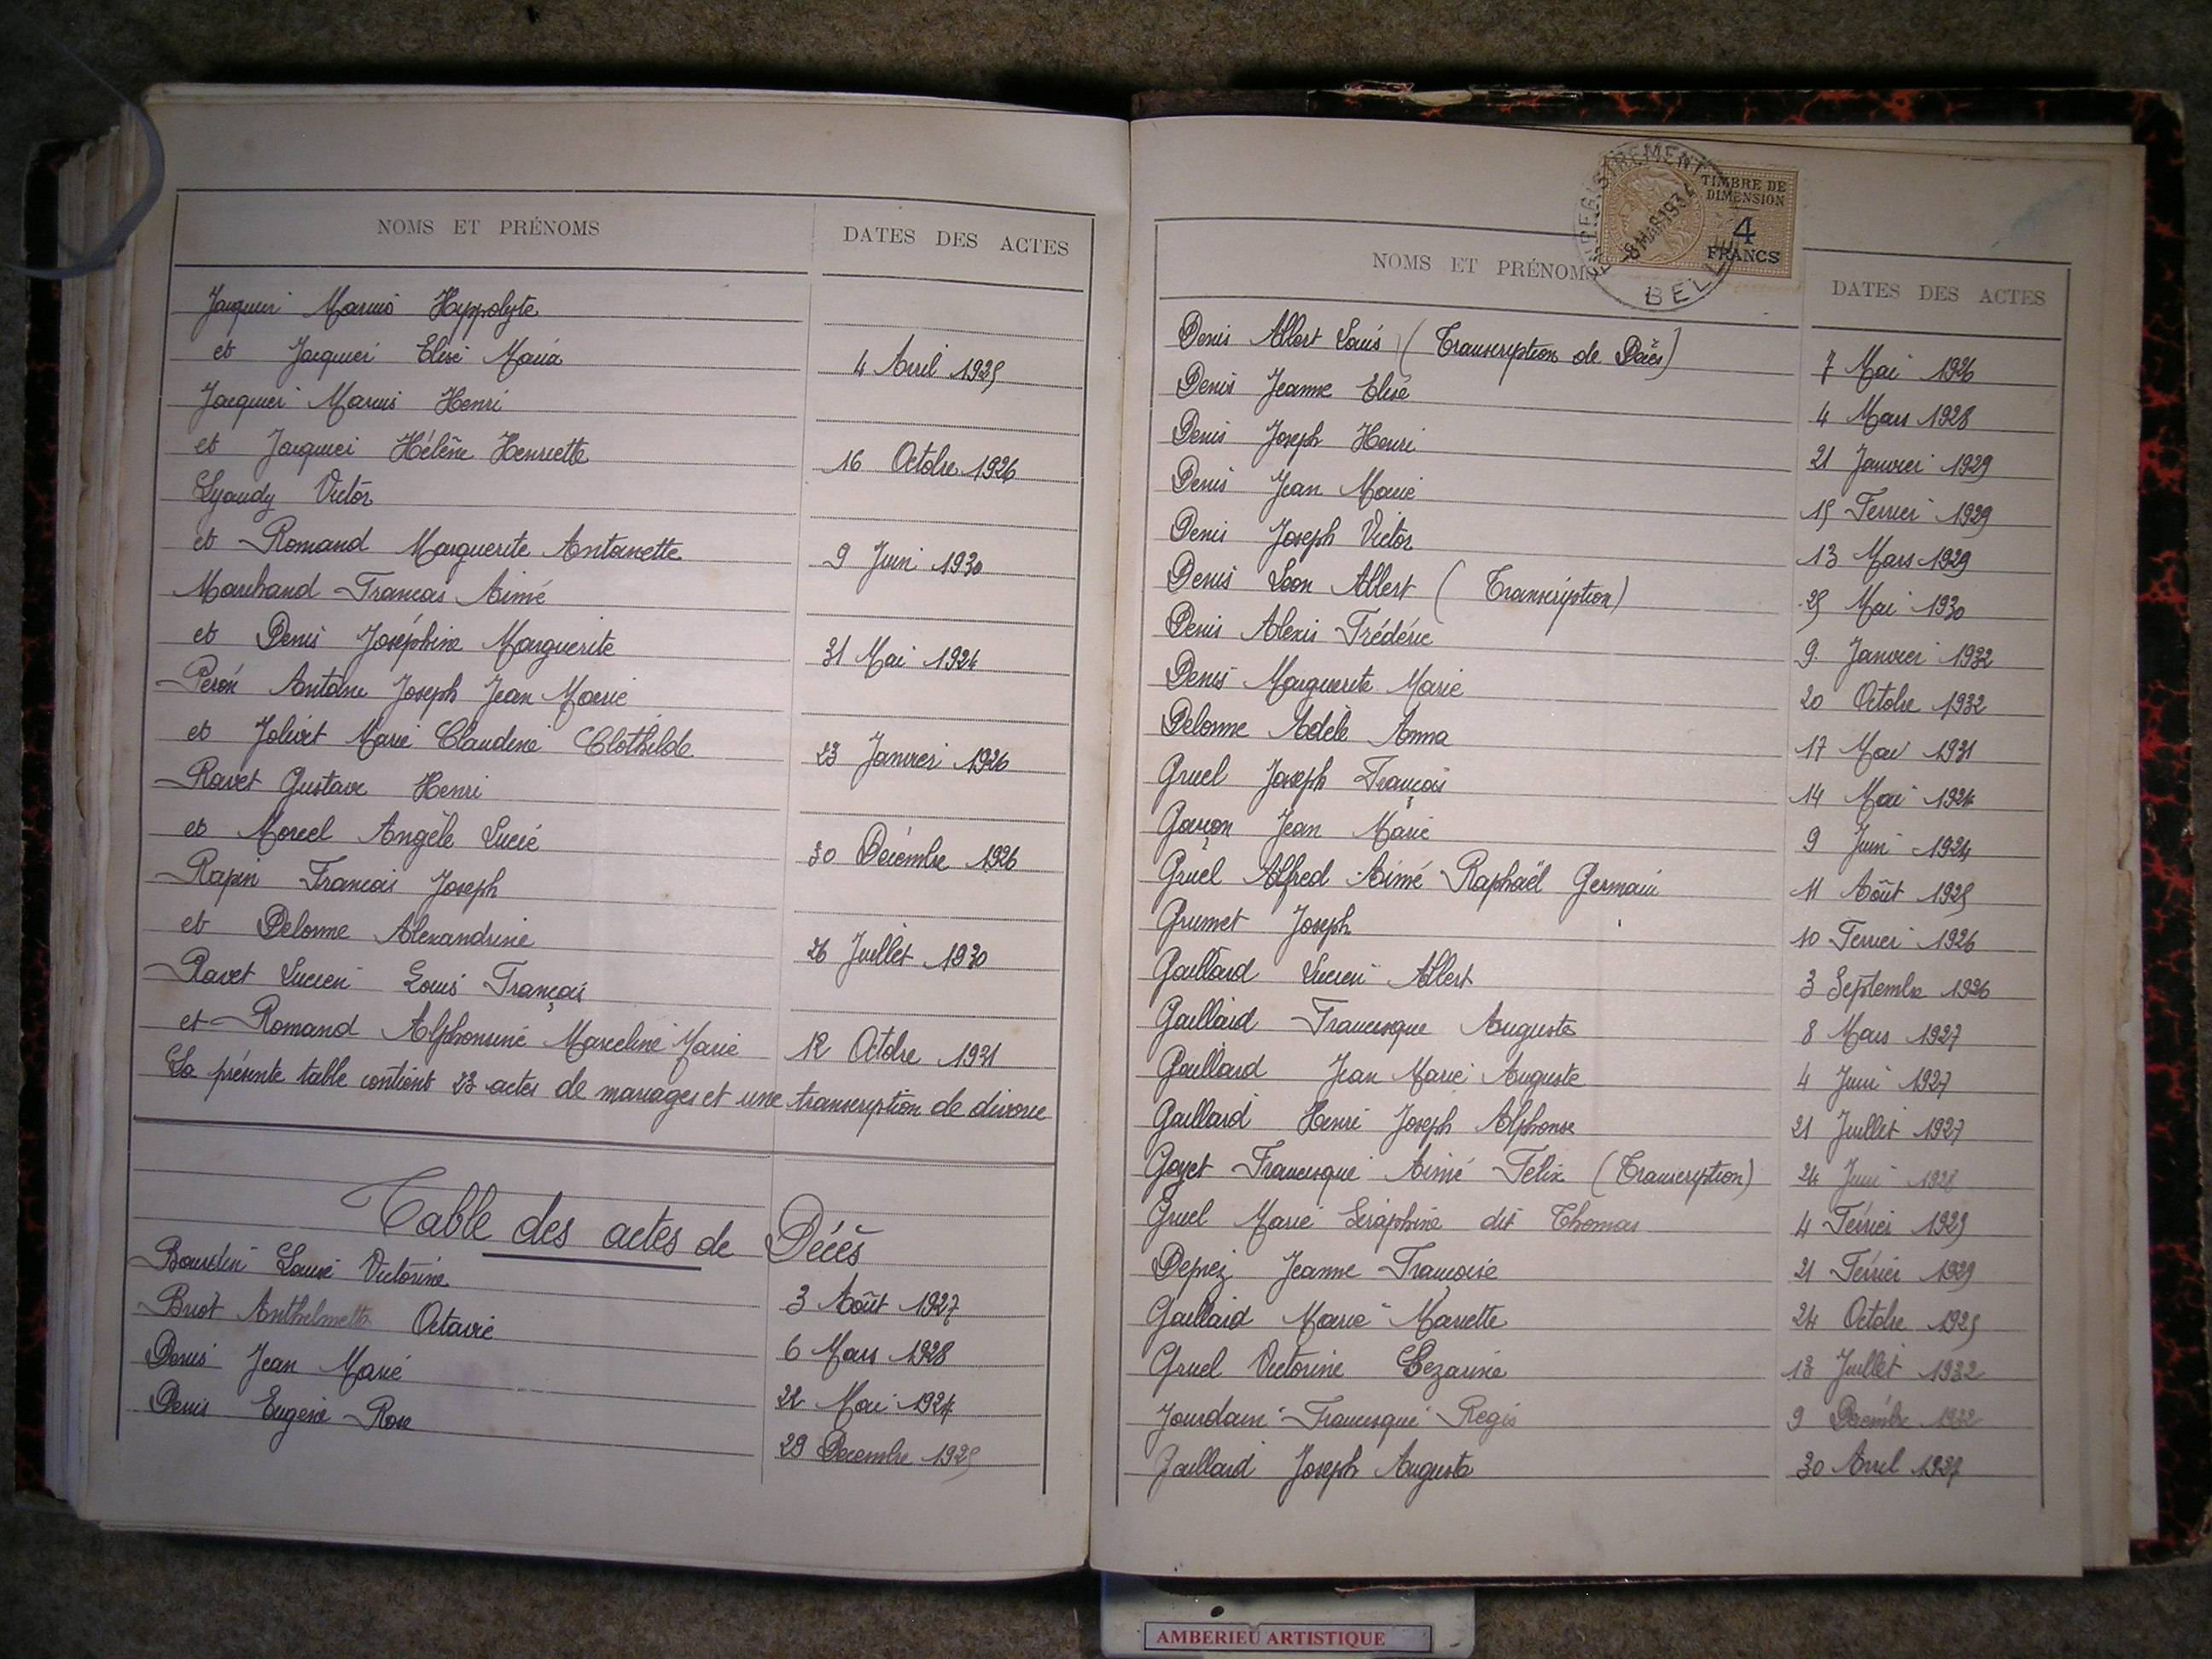 NOMS ET PRÉNOMS DATES DES ACTES
Jacquier Marius Hyppolyte
et Jacquier Elise Maria 4 Avril 1925
Jacquier Marius Henri
et Jacquier Hélène Henriette 16 Octobre 1926
Lyaudy Victor
et Romand Marguerite Antoinette 9 Juin 1930
Marchand Francois Aimé
et Denis Joséphine Marguerite 31 Mai 1924
Peron Antoine Joseph Jean Marie
et Jolivet Marie Claudine Clothilde 23 Janvier 1926
Ravet Gustave Henri
et Morel Angèle Lucie 30 Décembre 1926
Rapin Francois Joseph
et Delorme Alexandrine 26 Juillet 1930
Ravet Lucien Louis François
et Romand Alphonsine Marceline Marie 12 Octobre 1931
La présente table contient 23 actes de mariages et une transcription de divorce
Table des actes de Décès
Bourdin Louise Victorine 3 Août 1927
Briot Anthelmette Octavie 6 Mars 1928
Denis Jean Marie 22 Mai 1924
Denis Eugénie Rose 29 Decembre 1925
ENREGISTREMENT
8 MARS 1934
BELL
TIMBRE DE
DIMENSION
4
FRANCS
NOMS ET PRÉNOMS DATES DES ACTES
Denis Albert Louis (Transcription de Décès) 7 Mai 1926
Denis Jeanne Elise 4 Mars 1928
Denis Joseph Henri 21 Janvier 1929
Denis Jean Marie 15 Fevrier 1929
Denis Joseph Victor 13 Mars 1929
Denis Léon Albert (Transcription) 25 Mai 1930
Denis Alexis Frédéric 9 Janvier 1932
Denis Marguerite Marie 20 Octobre 1932
Delorme Adèle Anna 17 Mai 1931
Gruel Joseph François 14 Mai 1924
Garçon Jean Marie 9 Juin 1924
Gruel Alfred Aimé Raphaël Germain 11 Août 1925
Grumet Joseph 10 Fevrier 1926
Gaillard Lucien Albert 3 Septembre 1926
Gaillard Francisque Auguste 8 Mars 1927
Gaillard Jean Marie Auguste 4 Juin 1927
Gaillard Henri Joseph Alphonse 21 Juillet 1927
Goyet Francisque Aimé Felix (Transcription) 24 Juin 1928
Gruel Marie Séraphine dit Thomas 4 Février 1929
Depréz Jeanne Françoise 21 Février 1929
Gaillard Marie Mariette 24 Octobre 1925
Gruel Victorine Cezarine 13 Juillet 1932
Jourdain Francisque Regis 9 Décémbre 1932
Gaillard Joseph Auguste 30 Avril 1927
AMBERIEU ARTISTIQUE